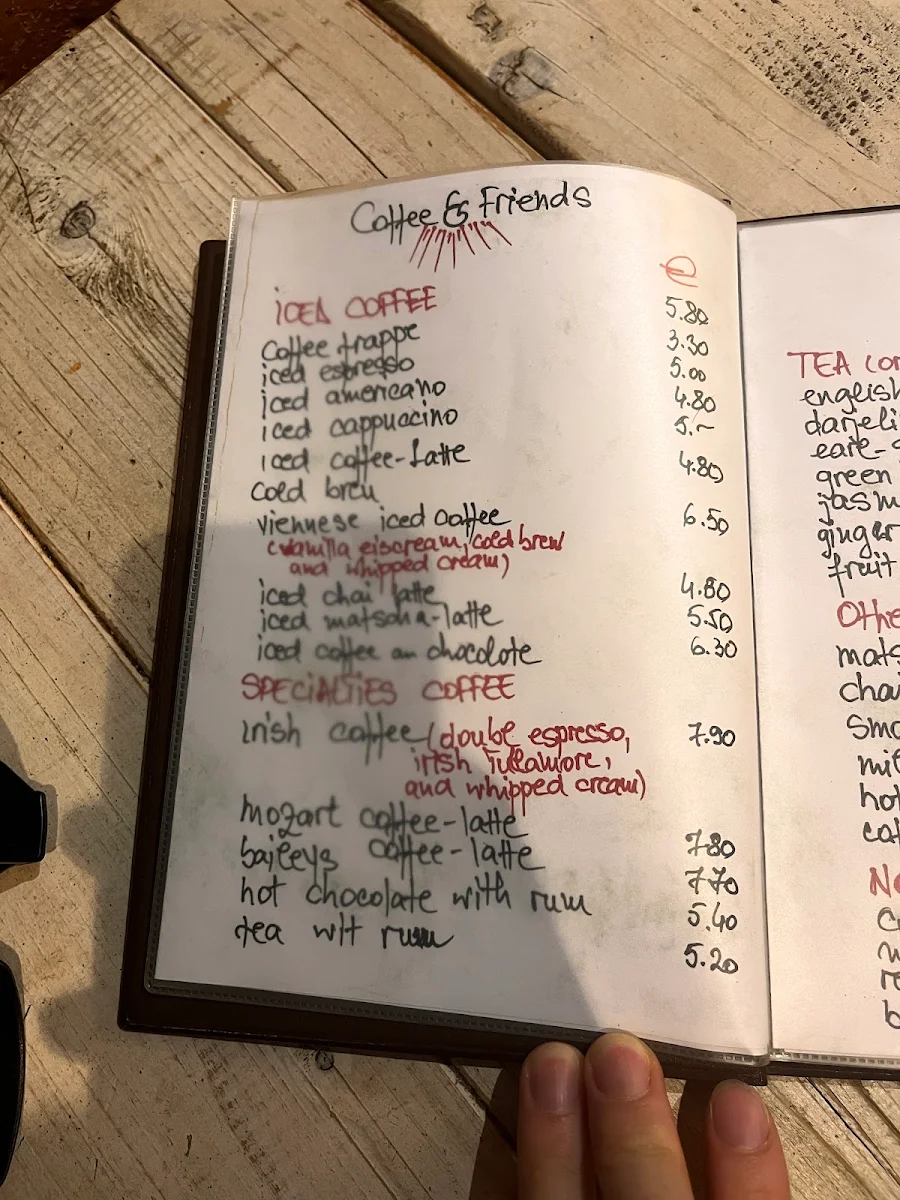 Coffee & Friends
€
ICED COFFEE
Coffee frappe 5.80
iced espresso 3.30
iced americano 5.00
iced cappuccino 4.80
iced coffee-latte 5.-
cold brew 4.80
viennese iced coffee 6.50
(vanilla eiscream, cold brew
and whipped cream)
iced chai latte 4.80
iced matscha-latte 5.50
iced coffee an chocolote 6.30
SPECIALTIES COFFEE
irish coffee (doube espresso, 7.90
irish Tullamore,
and whipped cream)
mozart coffee-latte 7.80
baileys coffee-latte 7.70
hot chocolate with rum 5.40
tea wit rum 5.20
TEA
english
darjeli
green
jasm
ginger
fruit
Othe
mats
chai
smo
hot